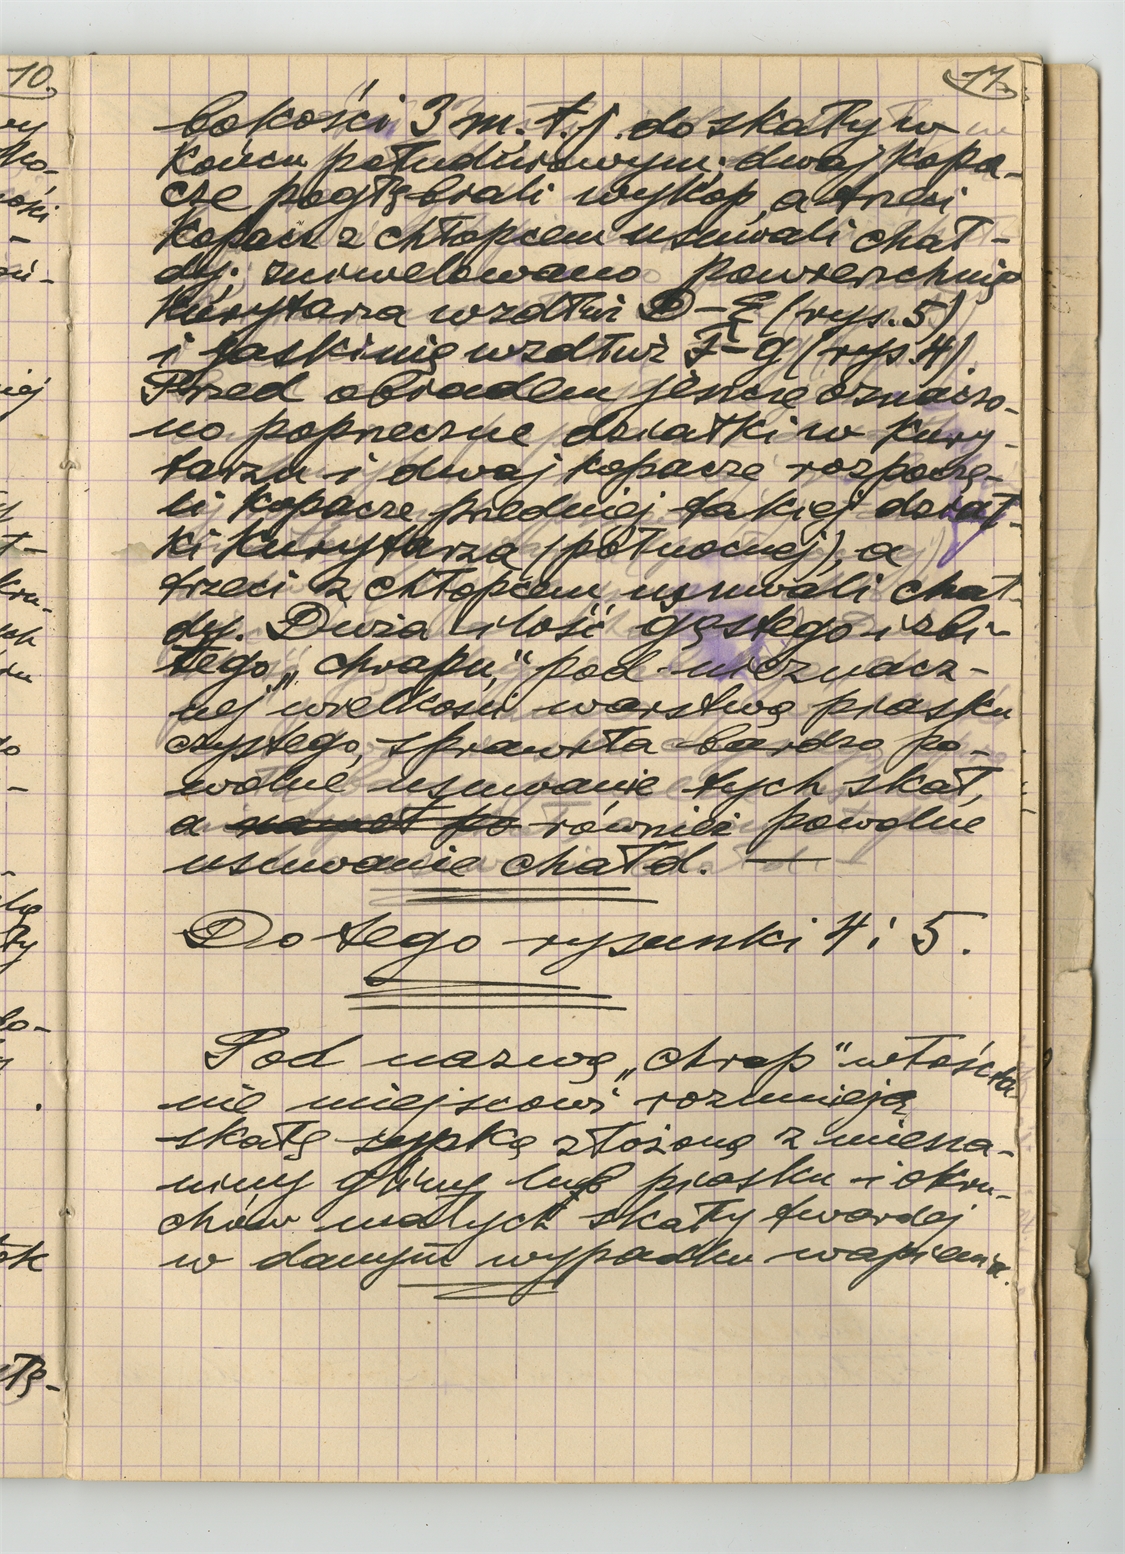 10.
11.
bokości 3 m. t.j. do skały w
końcu południowym; dwaj kopa-
cze pogłębiali wykop, a trzeci
kopacz z chłopcem usuwali chał-
dy; zniwelowano powierzchnię
kurytarza wzdłuż D-E (rys. 5)
i jaskinię wzdłuż F-G (rys. 4)
Przed obiadem jeszcze oznaczo-
no poprzeczne działki w kury-
tarzu i dwaj kopacze rozpoczę-
li kopacze przedniej takiej dział-
ki kurytarza (północnej), a
trzeci z chłopcem usuwali chał-
dy. Duża ilość gęstego i zbi-
tego „chrapu,“ pod nieznacz-
nej wielkości warstwą piasku
czystego, sprawiła bardzo po-
wolne usuwanie tych skał,
a nawet po również powolne
usuwanie chałd. —
Do tego rysunki 4 i 5.
Pod nazwą „chrap“ włościa-
nie miejscowi rozumieją
skałę sypką złożoną z miesza-
niny gliny lub piasku i okru-
chów małych skały twardej
w danym wypadku wapienia.